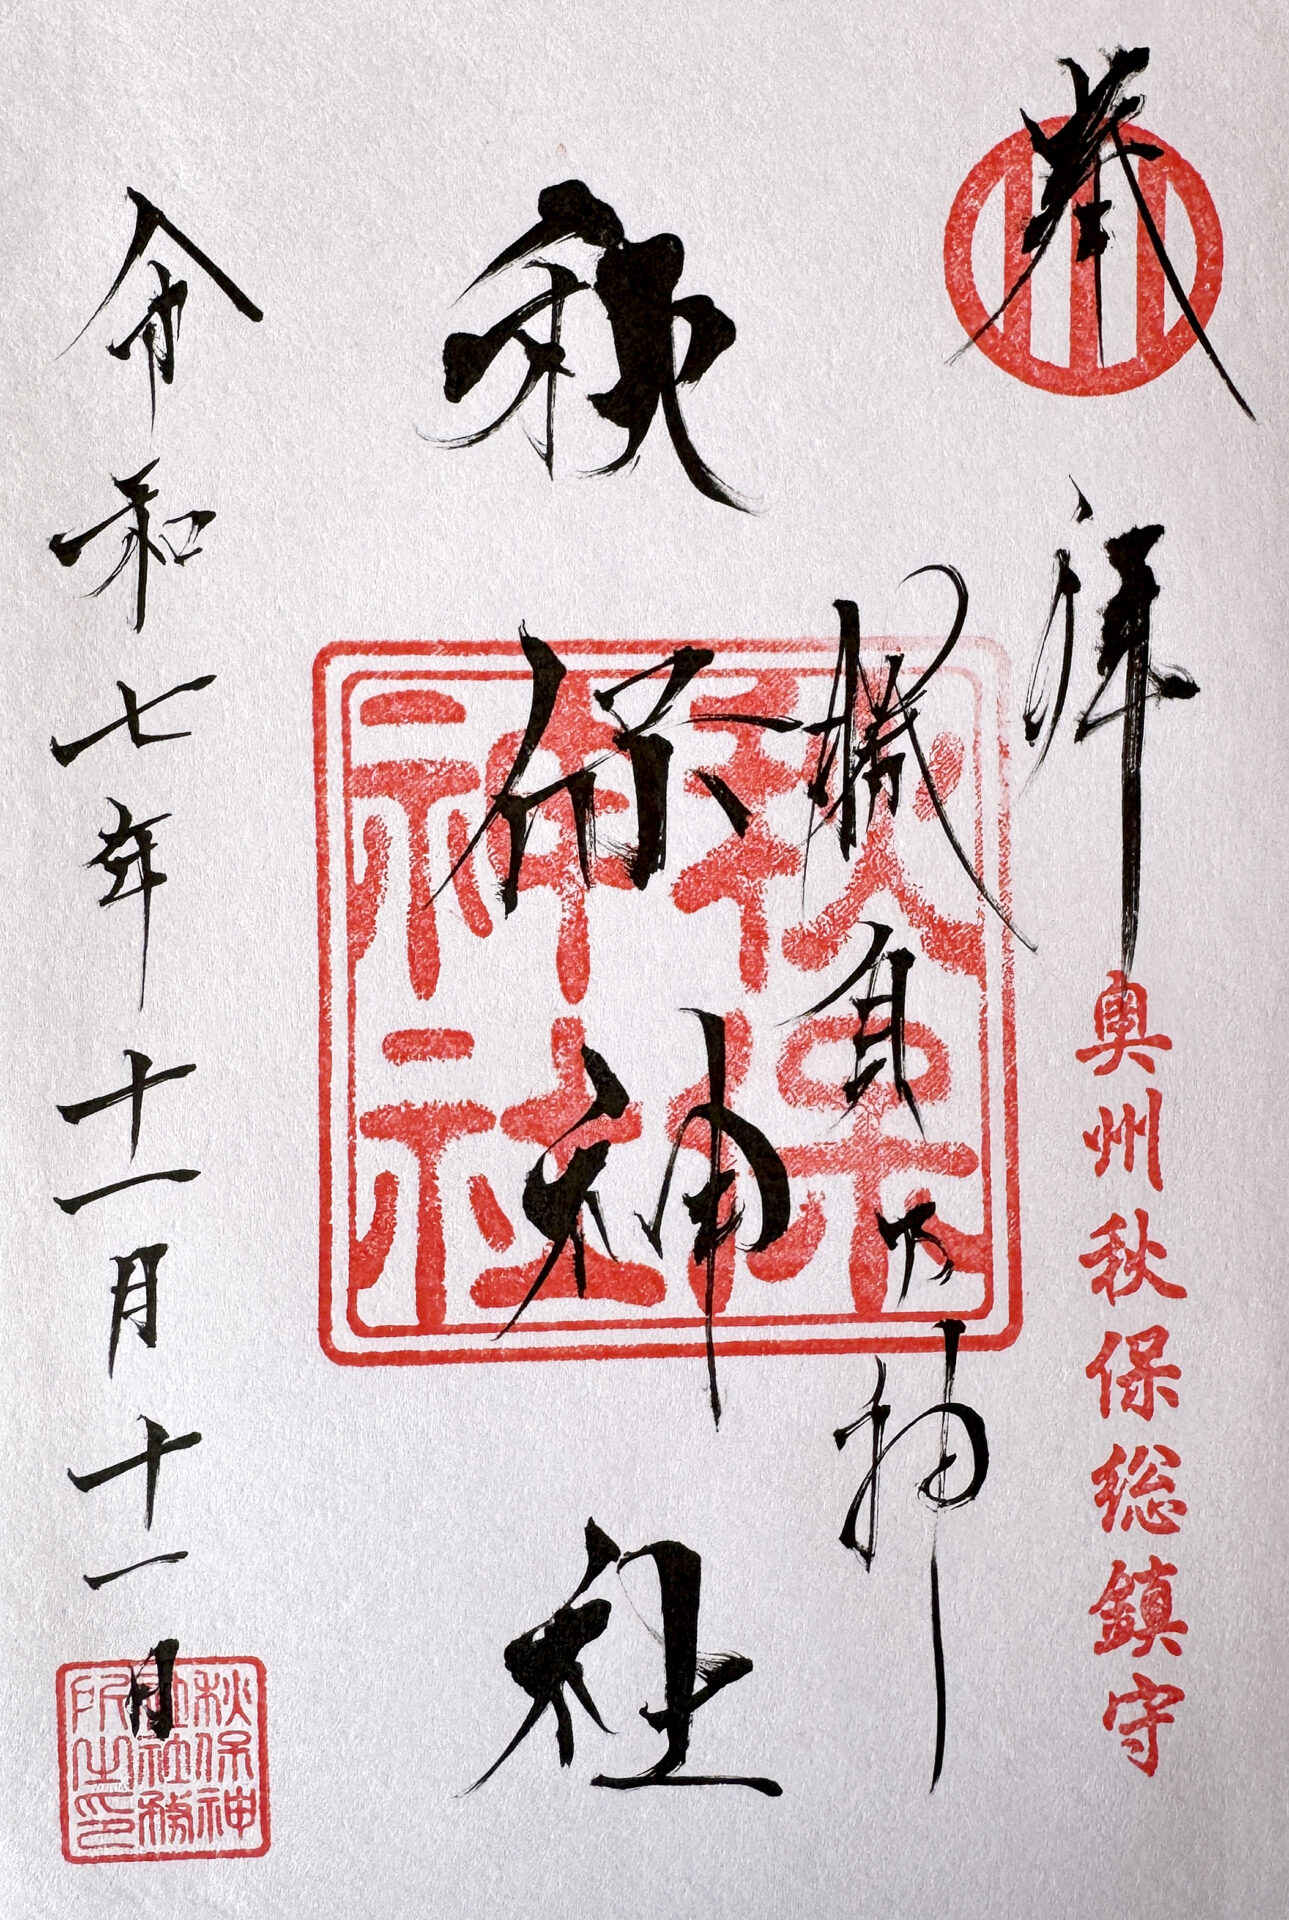 奉拝
奥州秋保総鎮守
勝負乃神
秋保神社
秋保
神社
令和七年十一月十一日
秋保神
社社務
所之印